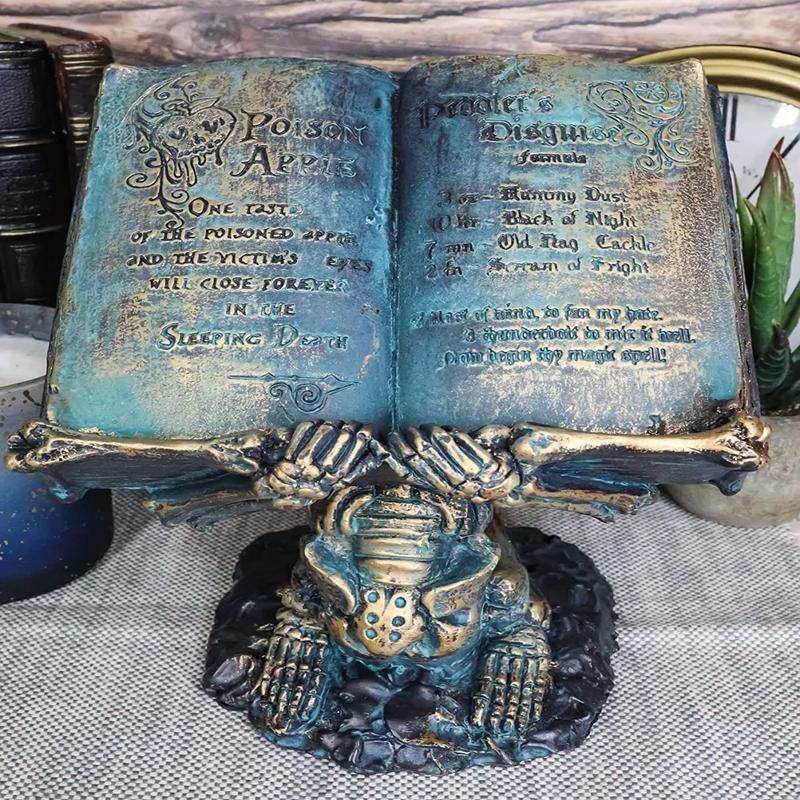 Poison
Apple
One taste
of the poisoned apple
and the victim's eyes
will close forever
in the
Sleeping Death
Peddler's
Disguise
formula
Mummy Dust
Black of Night
7 mn - Old Hag Cackle
Scream of Fright
of wind, to fan my hate.
A thunderbolt to mix it well.
Now begin thy magic spell!